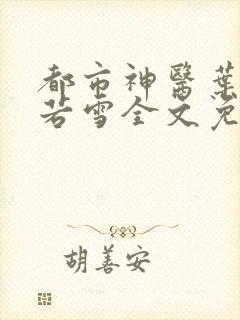 都市神醫葉
若雪全文免
胡善安